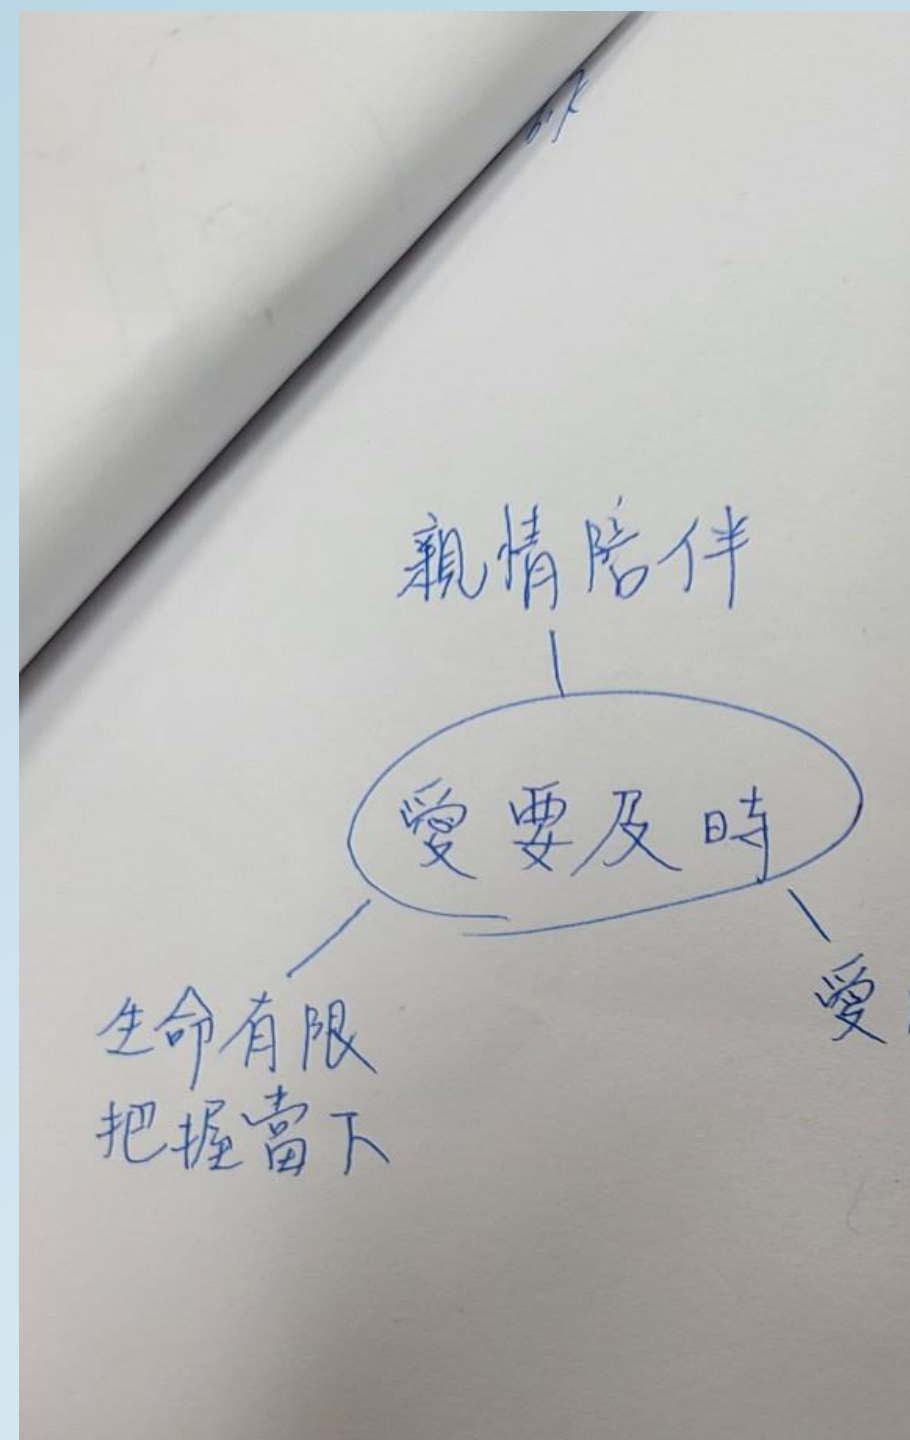 親情陪伴
愛要及時
生命有限
把握當下
愛